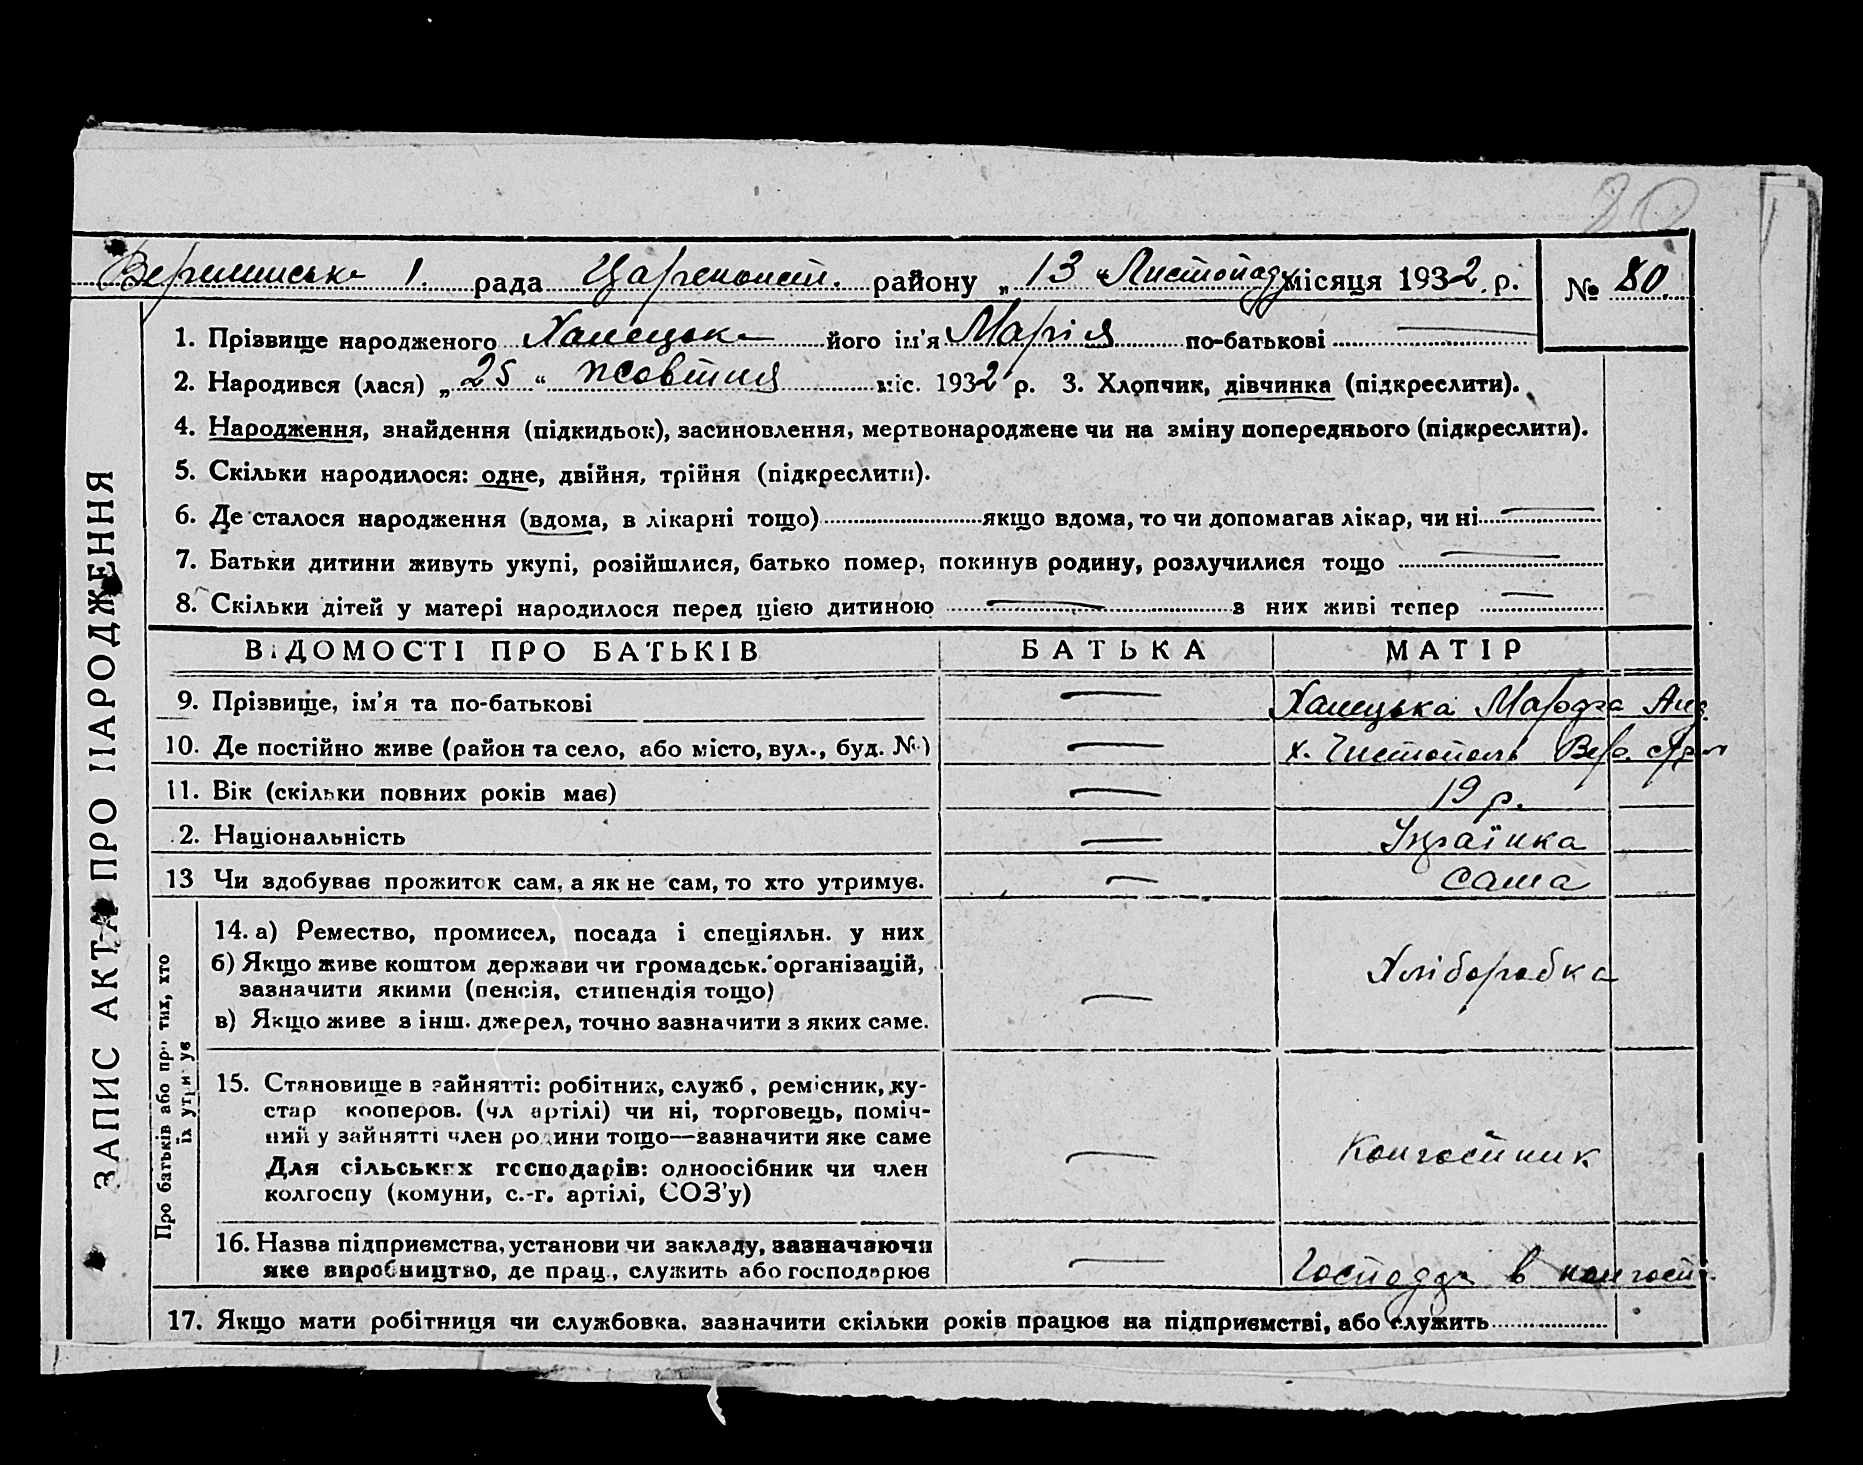 80
рада Царичанськ. району „13“ Листопаду місяця 1932 р. № 80.
1. Прізвище народженого Халецька його ім'я Марія по-батькові —
2. Народився (лася) „25“ жовтня міс. 1932 р. 3. Хлопчик, дівчинка (підкреслити).
4. Народження, знайдення (підкидьок), засиновлення, мертвонароджене чи на зміну попереднього (підкреслити).
5. Скільки народилося: одне, двійня, трійня (підкреслити).
6. Де сталося народження (вдома, в лікарні тощо) якщо вдома, то чи допомагав лікар, чи ні —
7. Батьки дитини живуть укупі, розійшлися, батько помер, покинув родину, розлучилися тощо —
8. Скільки дітей у матері народилося перед цією дитиною — з них живі тепер —
ВІДОМОСТІ ПРО БАТЬКІВ БАТЬКА МАТІР
9. Прізвище, ім'я та по-батькові — Халецька Марфа Анд.
10. Де постійно живе (район та село, або місто, вул., буд. №) — х. Чистополь
11. Вік (скільки повних років має) — 19 р.
2. Національність — Україпка
13 Чи здобуває прожиток сам, а як не сам, то хто утримує. — сама
14. а) Ремество, промисел, посада і спеціяльн. у них
б) Якщо живе коштом держави чи громадськ. організацій,
зазначити якими (пенсія, стипендія тощо) — Хліборобка
в) Якщо живе з інш. джерел, точно зазначити з яких саме.
15. Становище в зайнятті: робітник, служб, ремісник, ку-
стар кооперов. (чл артілі) чи ні, торговець, поміч-
ний у зайнятті член родини тощо—зазначити яке саме — Колгоспник
Для сільських господарів: одноосібник чи член
колгоспу (комуни, с.-г. артілі, СОЗ'у)
16. Назва підприємства, установи чи закладу, зазначаючи
яке виробництво, де прац., служить або господарює — Господар в колгосп.
17. Якщо мати робітниця чи службовка, зазначити скільки років працює на підприємстві, або служить
ЗАПИС АКТА ПРО НАРОДЖЕННЯ
Про батьків або про тих, хто
їх утримує